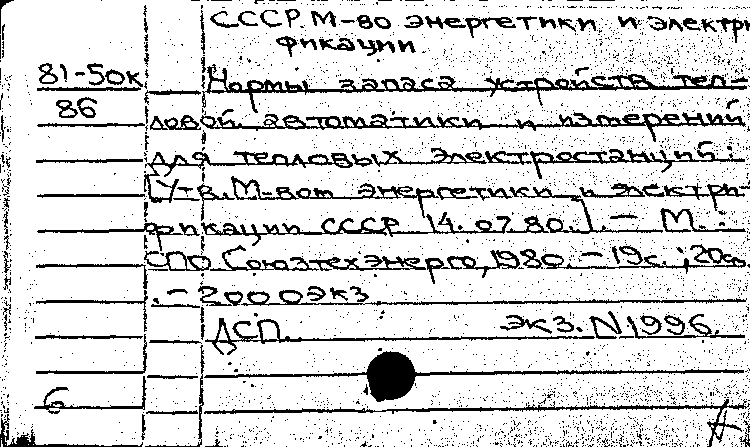 СССР. М-во энергетики и электри
фикации.
81-50к Нормы запаса устройств теп-
86 ловой автоматики и измерений
для тепловых электростанций:
[Утв. М-вом энергетики и электри-
фикации СССР 14.07.80.]. – М.:
СПО Союзтехэнерго, 1980. – 19с.; 20см
. – 2000экз
ДСП. Экз. N1996.
6
А